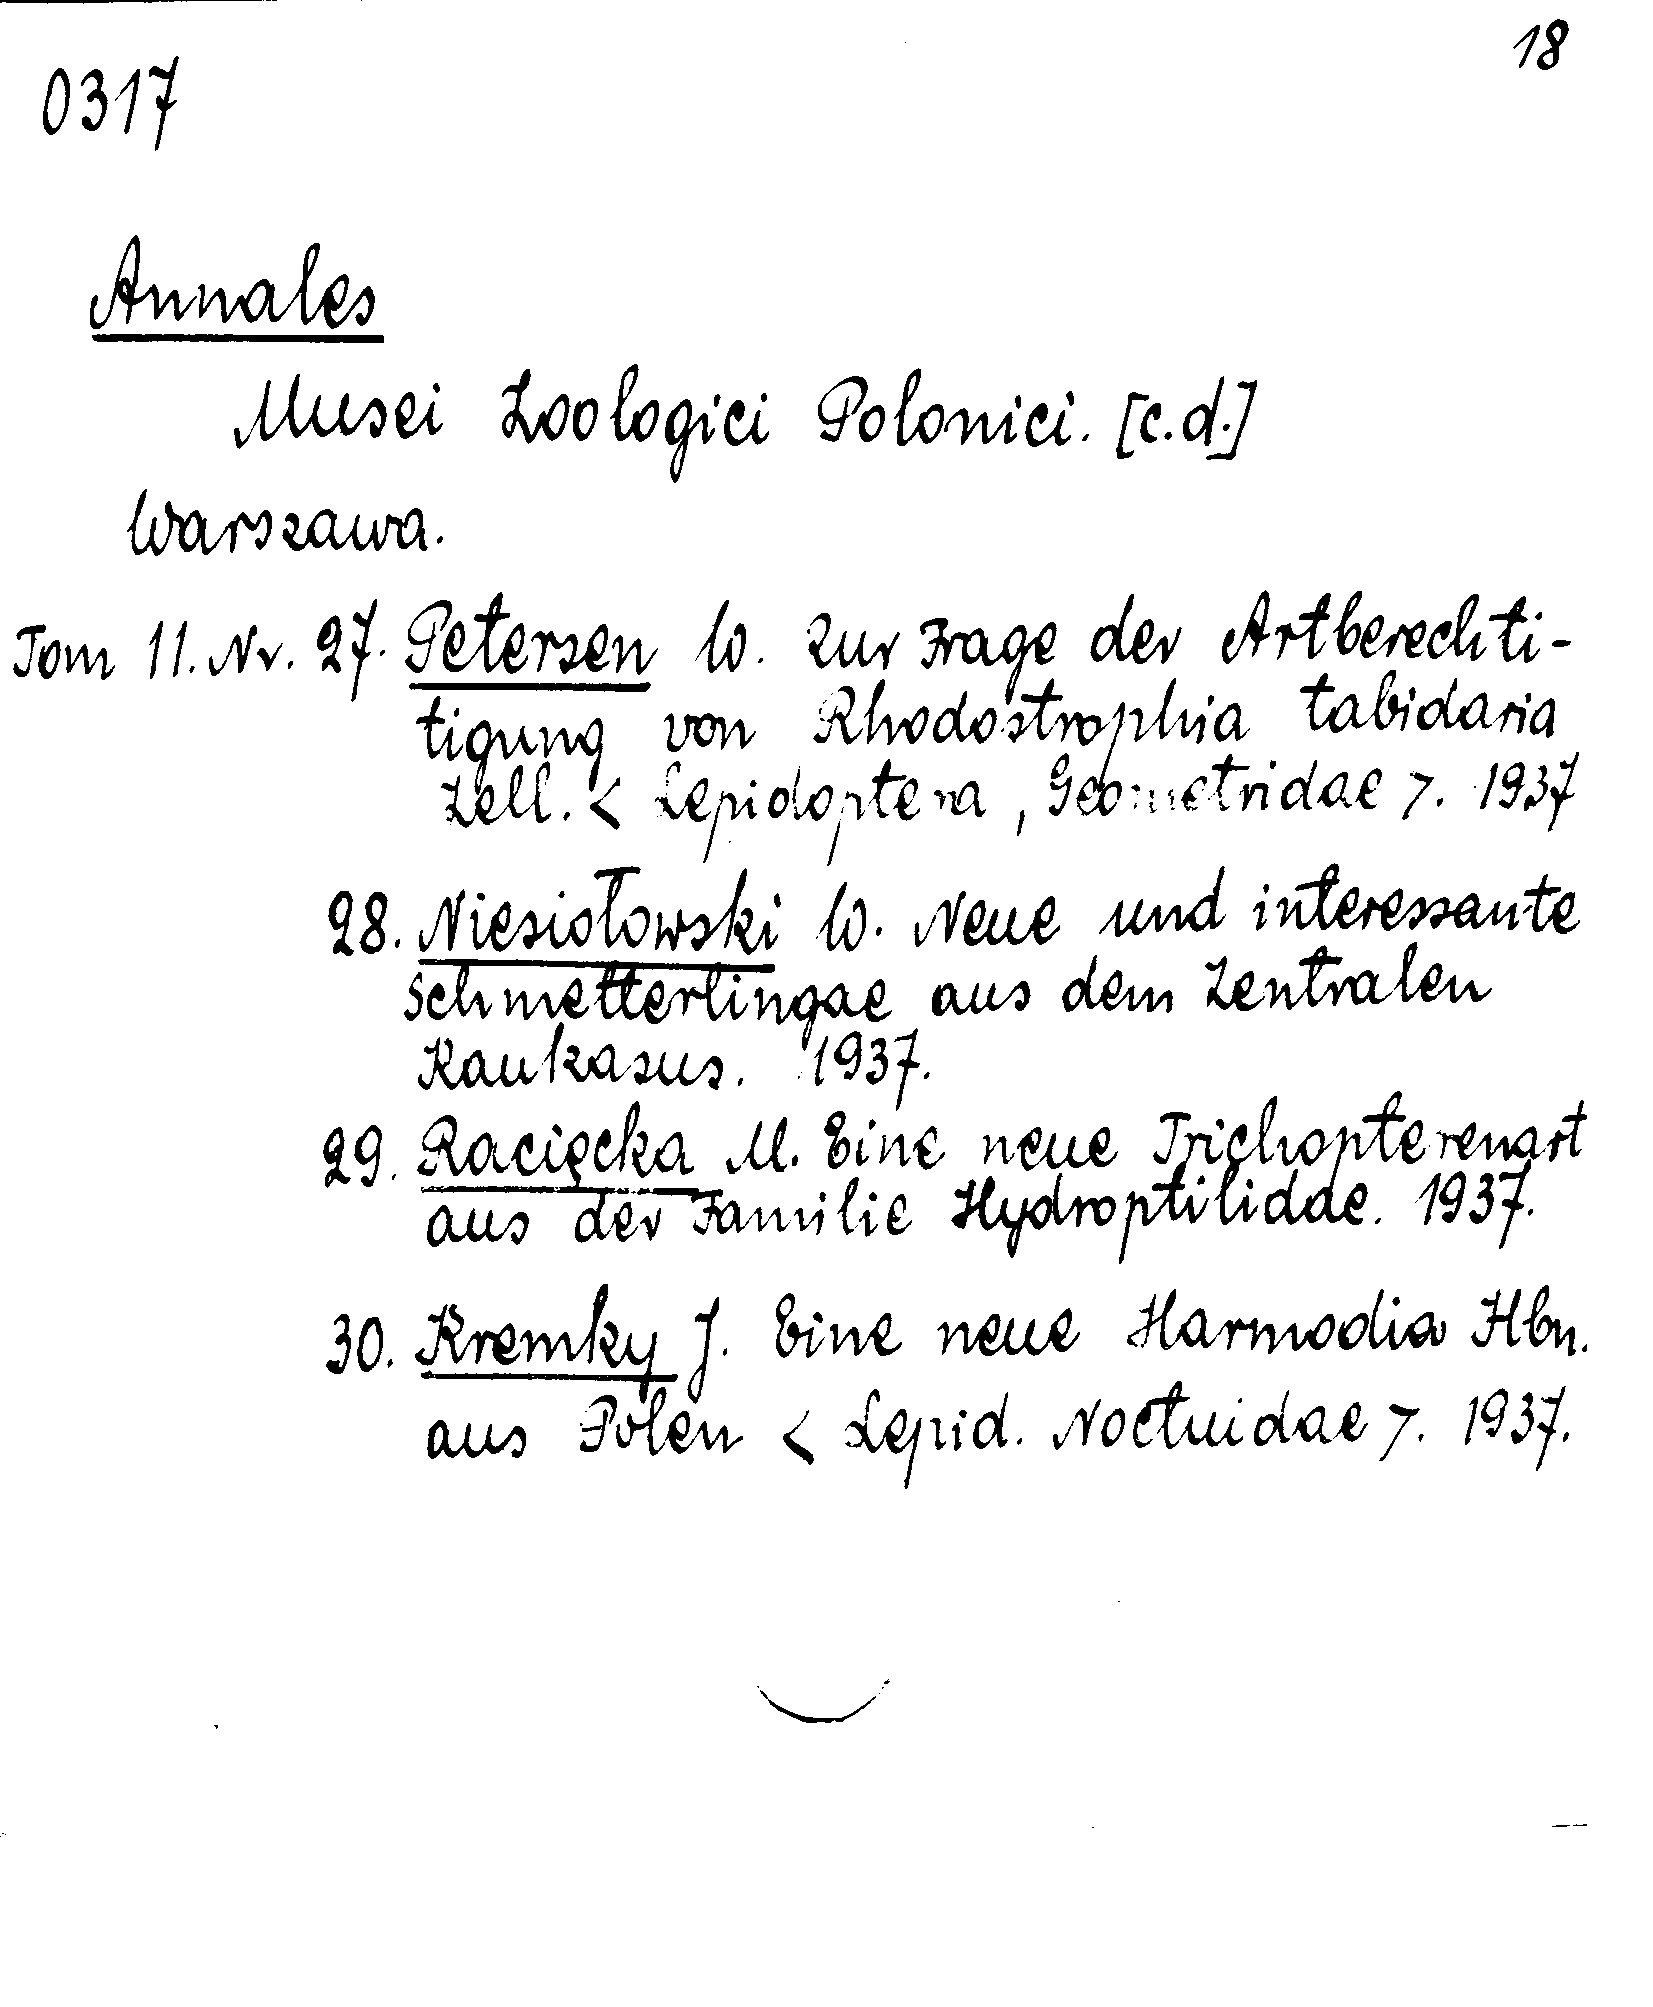 18
0317
Annales
Musei Zoologici Polonici. [c.d.]
Warszawa.
Tom 11. Nr. 27. Petersen W. Zur Frage der Artberechti-
tigung von Rhodostrophia tabidaria
Zell. < Lepidoptera, Geometridae >. 1937
28. Niesiołowski W. Neue und interessante
Schmetterlingae aus dem Zentralen
Kaukasus. 1937.
29. Racięcka M. Eine neue Trichopterenart
aus der Familie Hydroptilidae. 1937.
30. Kremky J. Eine neue Harmodia Hbn.
aus Polen < Lepid. Noctuidae >. 1937.